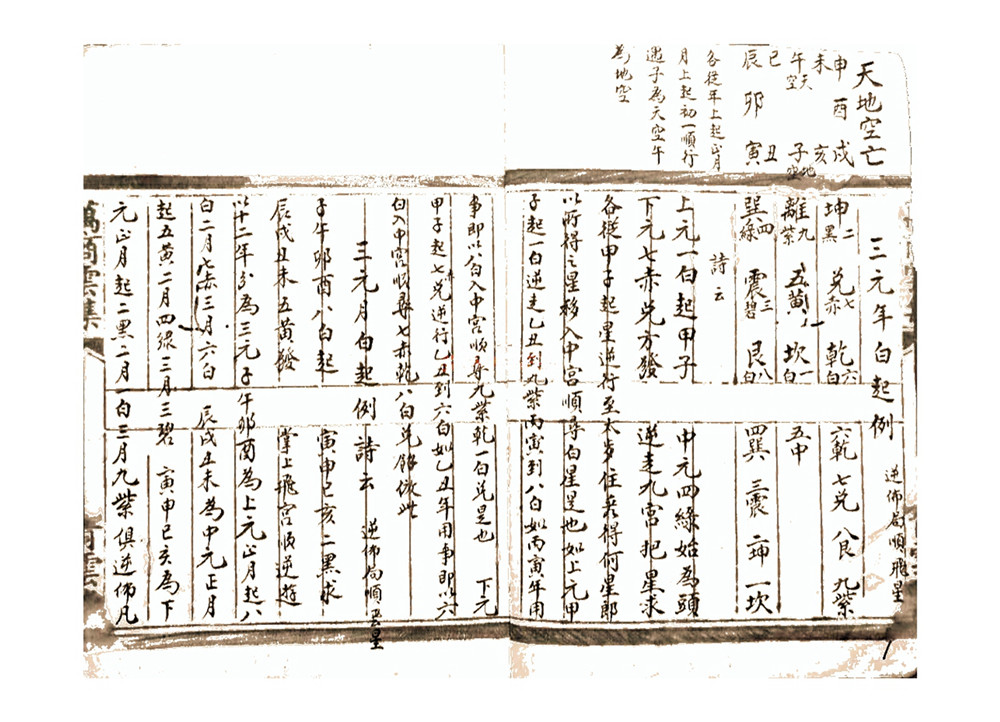 天地空亡
申 酉 戌
未 亥
午天空 子地空
巳 丑
辰 卯 寅
各從年上起正月
月上起初一順行
遇子為天空午
為地空
三元年白起例 逆佈局順飛星
坤二黑 兌七赤 乾六白 六乾 七兌 八艮 九紫
離九紫 五黃 坎一白 五中
巽四綠 震三碧 艮八白 四巽 三震 二坤 一坎
詩云
上元一白起甲子 中元四綠始為頭
下元七赤兌方發 逆走九宮把星求
各從甲子起星逆行至太歲住看得何星郎
以所得之星移入中宮順尋白星是也如上元甲
子起一白逆走乙丑到九紫丙寅到八白如丙寅年用
事即以八白入中宮順尋九紫乾一白兌是也 下元
甲子起七兌逆行乙丑到六白如乙丑年用事即以六
白入中宮順尋七赤乾八白兌餘依此
三元月白起例詩云 逆佈局順飛星
子午卯酉八白起 寅申巳亥二黑求
辰戌丑未五黃發 掌上飛宮順逆遊
以十二年分為三元子午卯酉為上元正月起八
白二月七赤三月六白 辰戌丑未為中元正月
起五黃二月四綠三月三碧 寅申巳亥為下
元正月起二黑二月一白三月九紫俱逆佈凡
萬商雲集
商雲
1